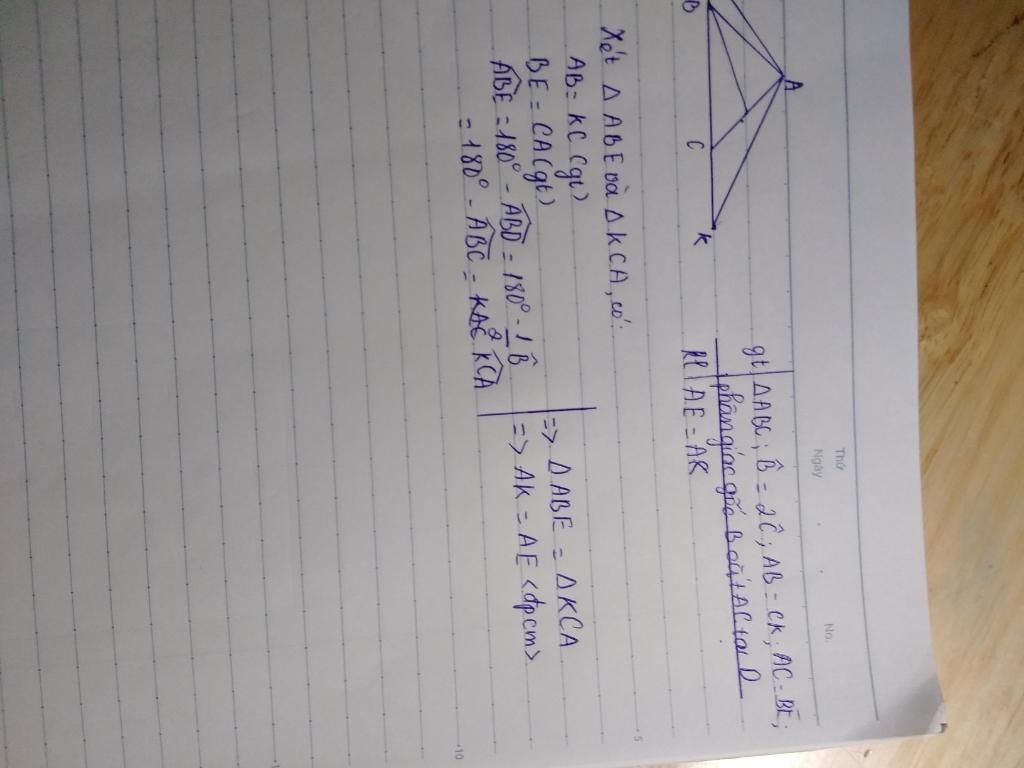 Thứ
Ngày
No.
B
A
C
K
gt ΔABC, B̂ = 2Ĉ, AB = CK, AC = BE;
phân giác góc B cắt AC tại D
kl AE = AK
Xét Δ ABE và Δ KCA, có:
AB = KC (gt)
BE = CA (gt)
ABE = 180° - ABD = 180° - 1/2 B̂
= 180° - ABC = KAC KCA
=> ΔABE = ΔKCA
=> AK = AE <đpcm>
5
10